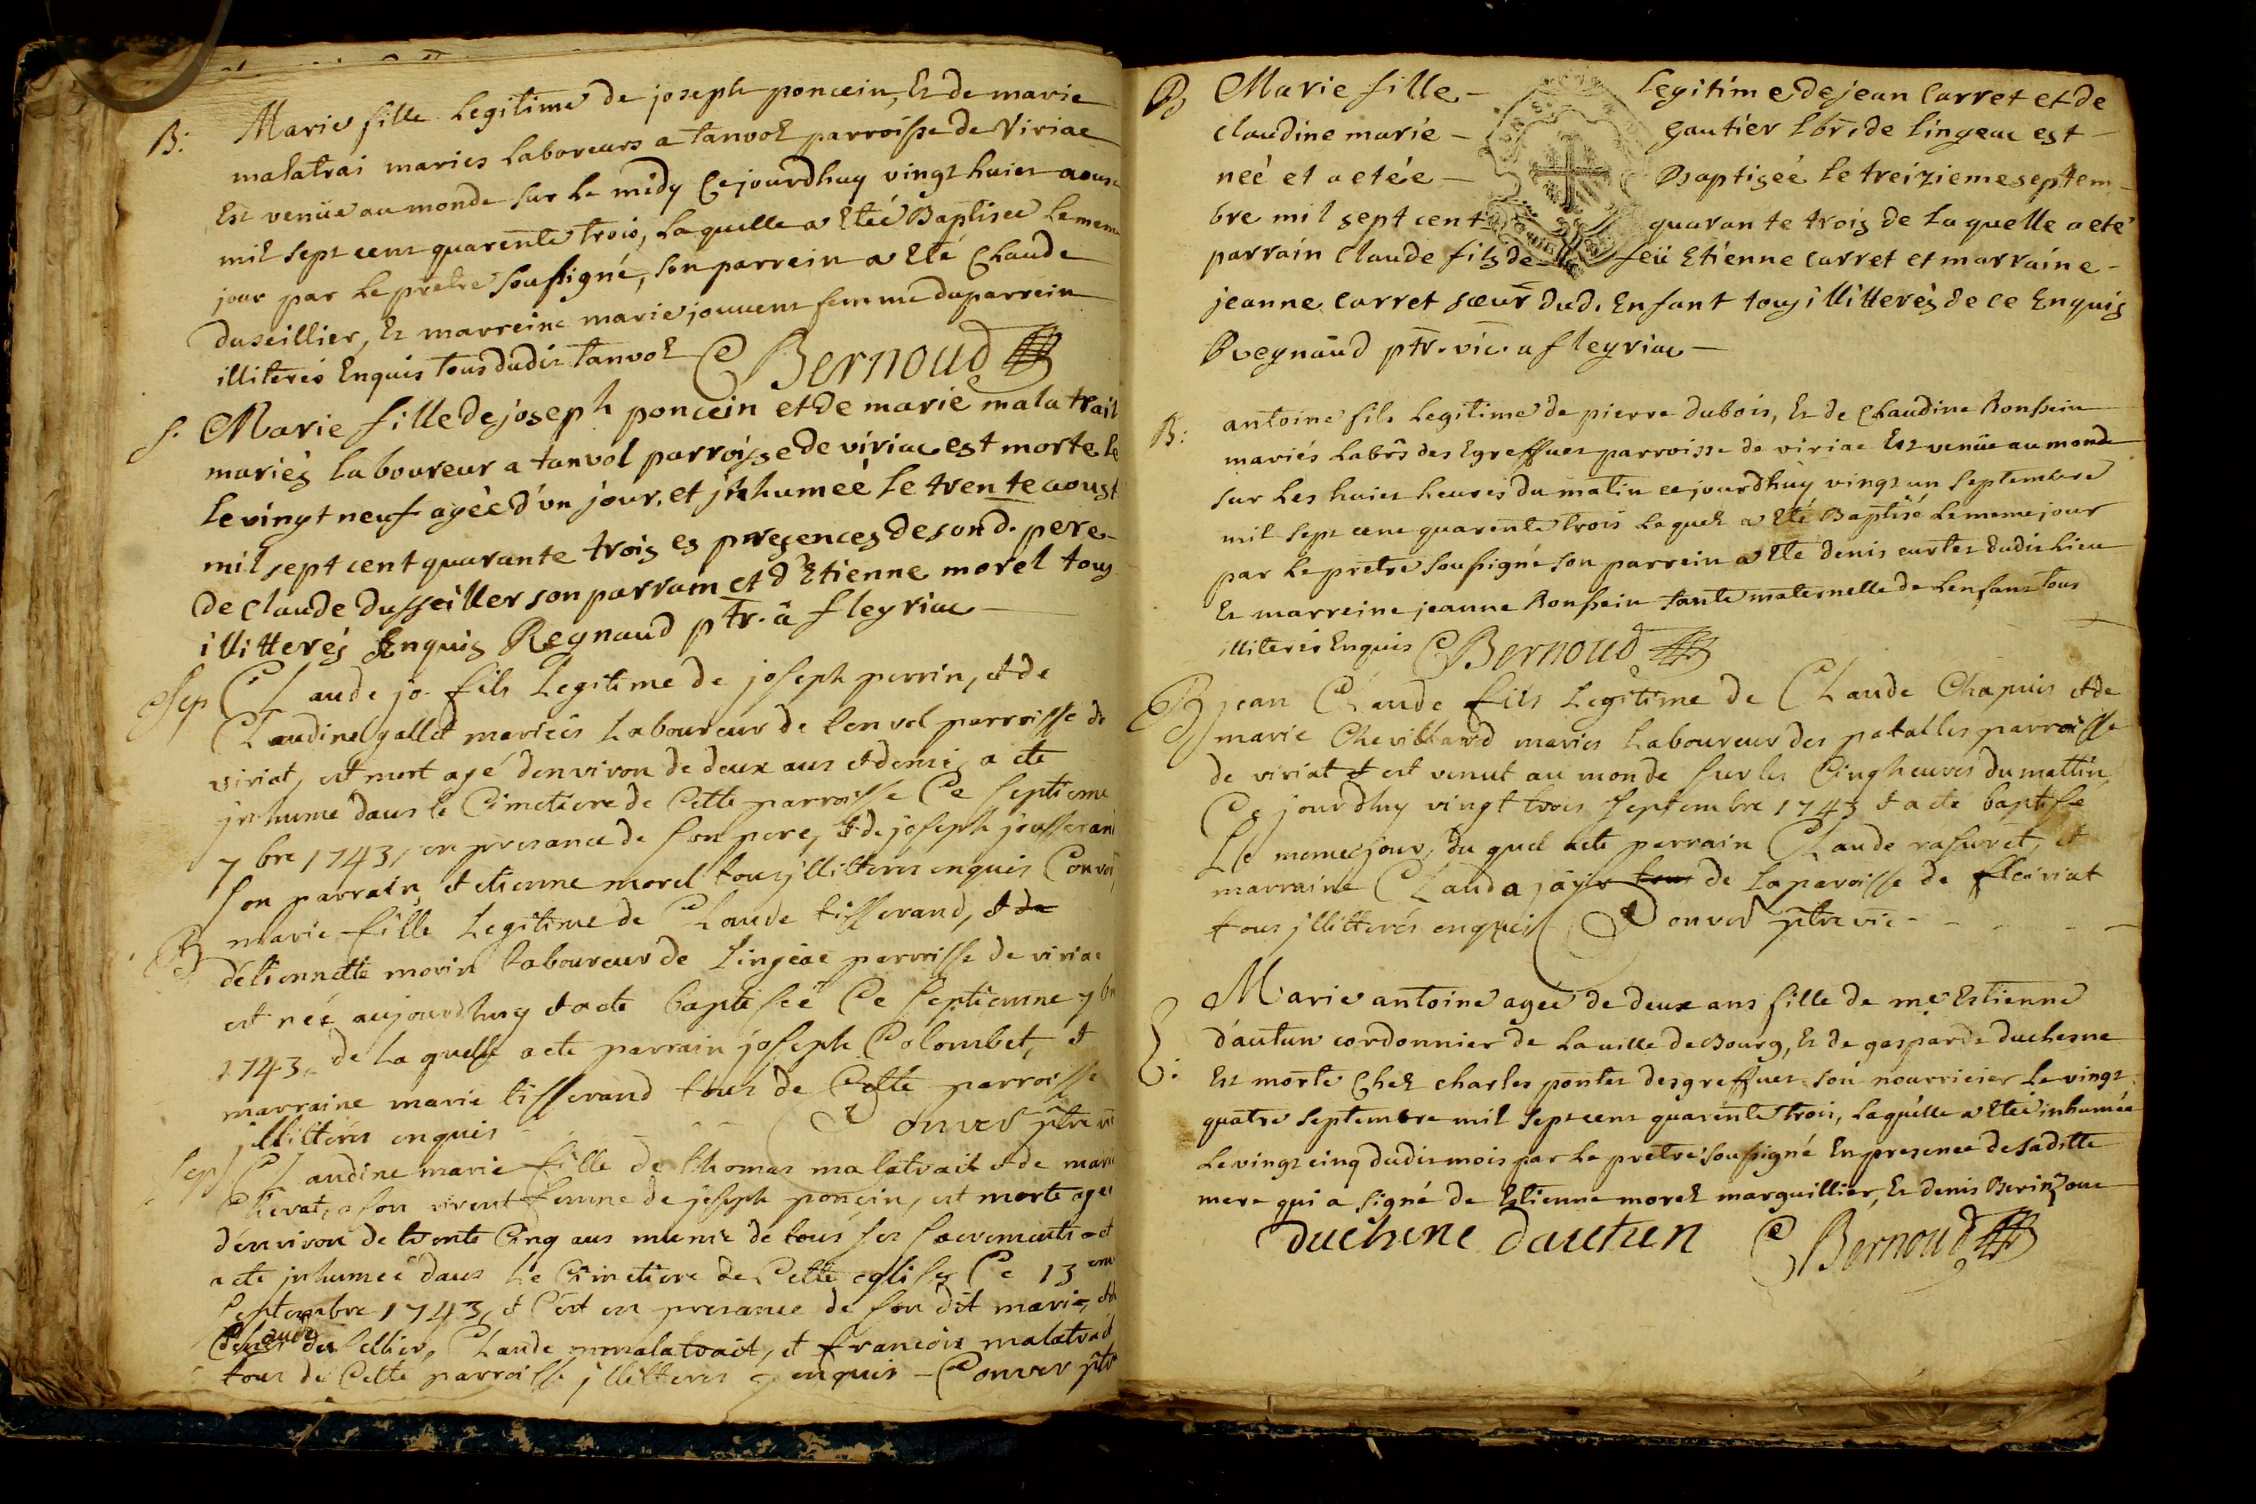 B. Marie fille Legitime de joseph poncein, Et de marie
malatrai mariés Laboreurs a tanvol parroisse de Viriac
Est venüe au monde sur Le midy Cejourdhuy vingt huict aoust
mil sept cent quarente trois, Laquelle a Eteé Baptisée Le meme
jour par Le pretre soussigné, son parrein a Eté Claude
duseillier, Et marreine marie jouvent femme du parrein
illiterés Enquis tous dudit tanvol C Bernoud
s. Marie fille de joseph poncein et de marie malatrait
mariés laboureur a tanvol parroisse de viriac est morte le
le vingt neuf ageé d'un jour, et jnhumeé le trente aoust
mil sept cent quarante trois es presences de son d. pere
de claude dusseiller son parrain et d'Etienne morel tous
illitterés Enquis Regnaud ptr. a fleyriac
Sep Claude jo. fils Legitime de joseph perrin, et de
Claudine gallet mariés Laboureur de tenvol parroisse de
viriat, est mort agé denviron de deux ans et demi, a ete
jnhumé dans le Cimetiere de Cette parroisse Ce septieme
7bre 1743, en presance de son pere, et de joseph jousserand
son parrain, et etienne morel tous jllitterés enquis Conver
B marie fille Legitime de Claude tisserand, et de
detiennette morin Laboureur de Lingeac parroisse de viriac
est neé aujourdhuy et a ete baptiseé Ce septieme 7bre
1743, de La quelle a ete parrain joseph Colombet, et
marraine marie tisserand tous de Cette parroisse
jllitterés enquis Conver ptre vic
Sep Claudine marie fille de thomas malatrait et de marie
Chevat, a son vivent femme de joseph poncin, est morte ageé
denviron de trente Cinq ans munie de tous ses sacrements et
a ete jnhumeé dans Le Cimetiere de Cette eglise Ce 13eme
septembre 1743, et Cest en presance de son dit marie, et de
Claude du sellier, Claude malatrait, et francois malatrait
tous de Cette parroisse jllitterés enquis - Conver ptre
B Marie fille - Legitime de jean Carret et de
claudine marie - gautier lbr. de lingeac est -
neé et a etée - Baptiseé le treizieme septem-
bre mil sept cent quarante trois de laquelle a eté
parrain claude fils de - feü Etienne carret et marraine -
jeanne carret sœur dud. Enfant tous illitterés de ce Enquis
Regnaud ptr. vic. a fleyriac -
B: antoine fils Legitime de pierre dubois, Et de Claudine Ronssein
mariés Labrs des Egreffues parroisse de viriac Est venüe au monde
sur Les huict heures du matin cejourdhuy vingt un septembre
mil sept cent quarente trois Lequel a Eté Baptisé Le meme jour
par Le pretre soussigné son parrein a Eté denis curtet dudit Lieu
Et marreine jeanne Ronssein tante maternelle de Lenfant tous
illiterés Enquis C Bernoud
B jean Claude fils Legitime de Claude Chapuis et de
marie Chevillard mariés Laboureur des patalles parroisse
de viriat et est venut au monde sur les Cinq heures du mattin,
Ce jourdhuy vingt trois septembre 1743 et a eté baptisé
Le meme jour, du quel a ete parrain Claude rasuret, et
marraine Clauda jayir tous de La paroisse de fleiriat
tous jllitterés enquis Conver ptre vic - - - -
S: Marie antoine agee de deux ans fille de me Estienne
d'autun cordonnier de La ville de Bourg, Et de gasparde duchesne
Est morte Chez charles pontet desgreffues son nourricier Le vingt
quatre septembre mil sept cent quarente trois, Laquelle a Eteé inhumée
Le vingt cinq dudit mois par Le pretre soussigné En presence de sa ditte
mere qui a signé de Estienne morel marguillier, Et denis
duchene dautun C Bernoud